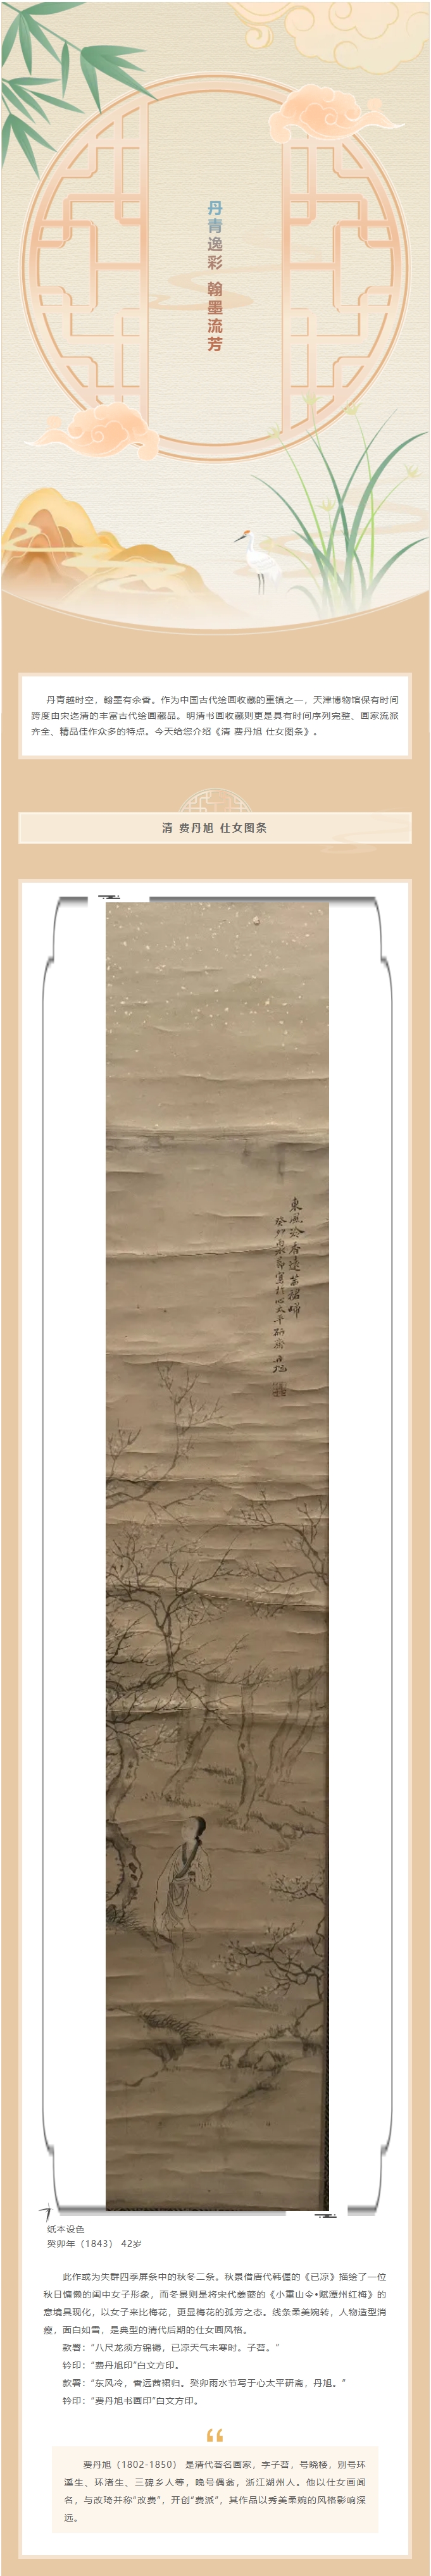 丹青逸彩 翰墨流芳
丹青越时空，翰墨有余香。作为中国古代绘画收藏的重镇之一，天津博物馆保有时间
跨度由宋迄清的丰富古代绘画藏品。明清书画收藏则更是具有时间序列完整、画家流派
齐全、精品佳作众多的特点。今天给您介绍《清 费丹旭 仕女图条》。
清 费丹旭 仕女图条
東風冷香遠茜裙歸
癸卯雨水節寫於心太平研齋丹旭
纸本设色
癸卯年（1843） 42岁
此作或为失群四季屏条中的秋冬二条。秋景借唐代韩偓的《已凉》描绘了一位
秋日慵懒的闺中女子形象，而冬景则是将宋代姜夔的《小重山令•赋潭州红梅》的
意境具现化，以女子来比梅花，更显梅花的孤芳之态。线条柔美婉转，人物造型消
瘦，面白如雪，是典型的清代后期的仕女画风格。
款署：“八尺龙须方锦褥，已凉天气未寒时。子苕。”
钤印：“费丹旭印”白文方印。
款署：“东风冷，香远茜裙归。癸卯雨水节写于心太平研斋，丹旭。”
钤印：“费丹旭书画印”白文方印。
费丹旭（1802-1850） 是清代著名画家，字子苕，号晓楼，别号环
溪生、环渚生、三碑乡人等，晚号偶翁，浙江湖州人。他以仕女画闻
名，与改琦并称“改费”，开创“费派”，其作品以秀美柔婉的风格影响深
远。